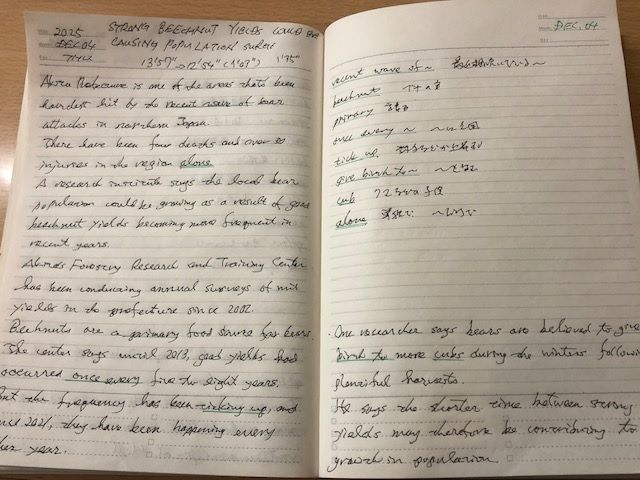 2025
DEC.04
THU
STRONG BEECHNUT YIELDS COULD BE
CAUSING POPULATION SURGE
13'57" → 12'54" (1'03") 1'75"
Akita Prefecture is one of the areas that's been
hardest hit by the recent wave of bear
attacks in northern Japan.
There have been four deaths and over 50
injuries in the region alone
A research institute says the local bear
population could be growing as a result of good
beechnut yields becoming more frequent in
recent years.
Akita's Forestry Research and Training Center
has been conducting annual surveys of nut
yields in the prefecture since 2002.
Beechnuts are a primary food source for bears.
The center says until 2013, good yields had
occurred once every five to eight years.
But the frequency has been ticking up, and
since 2021, they have been happening every
other year.
DEC.04
recent wave of ~
beechnut ブナの実
primary 主要な
once every ~ ~に1回
tick up
give birth to ~ ~を産む
cub クマなどの子供
alone
・One researcher says bears are believed to give
birth to more cubs during the winters following
plentiful harvests.
He says the shorter time between strong
yields may therefore be contributing to
growth in population